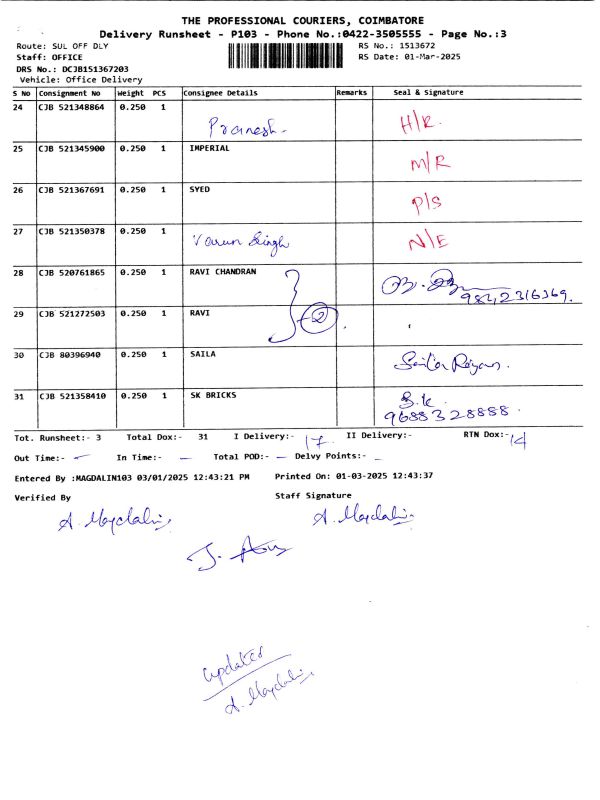 THE PROFESSIONAL COURIERS, COIMBATORE
Delivery Runsheet - P103 - Phone No.:0422-3505555 - Page No.:3
Route: SUL OFF DLY RS No.: 1513672
Staff: OFFICE RS Date: 01-Mar-2025
DRS No.: DCJB151367203
Vehicle: Office Delivery
S No Consignment No Weight PCS Consignee Details Remarks Seal & Signature
24 CJB 521348864 0.250 1 Pranesh- H/R.
25 CJB 521345900 0.250 1 IMPERIAL M/R
26 CJB 521367691 0.250 1 SYED P/S
27 CJB 521350378 0.250 1 Varun Singh N/E
28 CJB 520761865 0.250 1 RAVI CHANDRAN 9842316369.
29 CJB 521272503 0.250 1 RAVI 2
30 CJB 80396940 0.250 1 SAILA
31 CJB 521358410 0.250 1 SK BRICKS S.K
9688328888.
Tot. Runsheet:- 3 Total Dox:- 31 I Delivery:- 17 II Delivery:- RTN Dox:- 14
Out Time:- - In Time:- - Total POD:- - Delvy Points:- -
Entered By :MAGDALIN103 03/01/2025 12:43:21 PM Printed On: 01-03-2025 12:43:37
Verified By Staff Signature
A. Magdalin A. Magdalin
updated
A. Magdalin